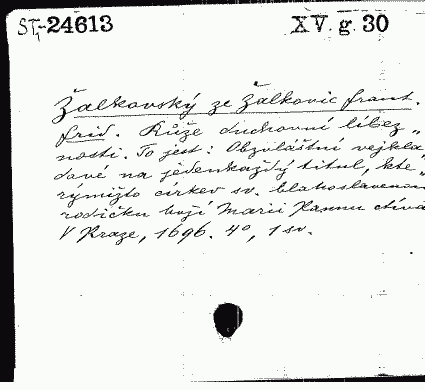 ST-24613 XV. g. 30
Žalkovský ze Žalkovic frant.
frid. Růže duchovní líbez„
nosti. To jest: Obzvláštní vejkla„
dové na jedenkaždý titul, kte„
rýmižto církev sv. blahoslavenou
rodičku boží Marii Pannu ctívá
V Praze, 1696. 4°, 1 sv.